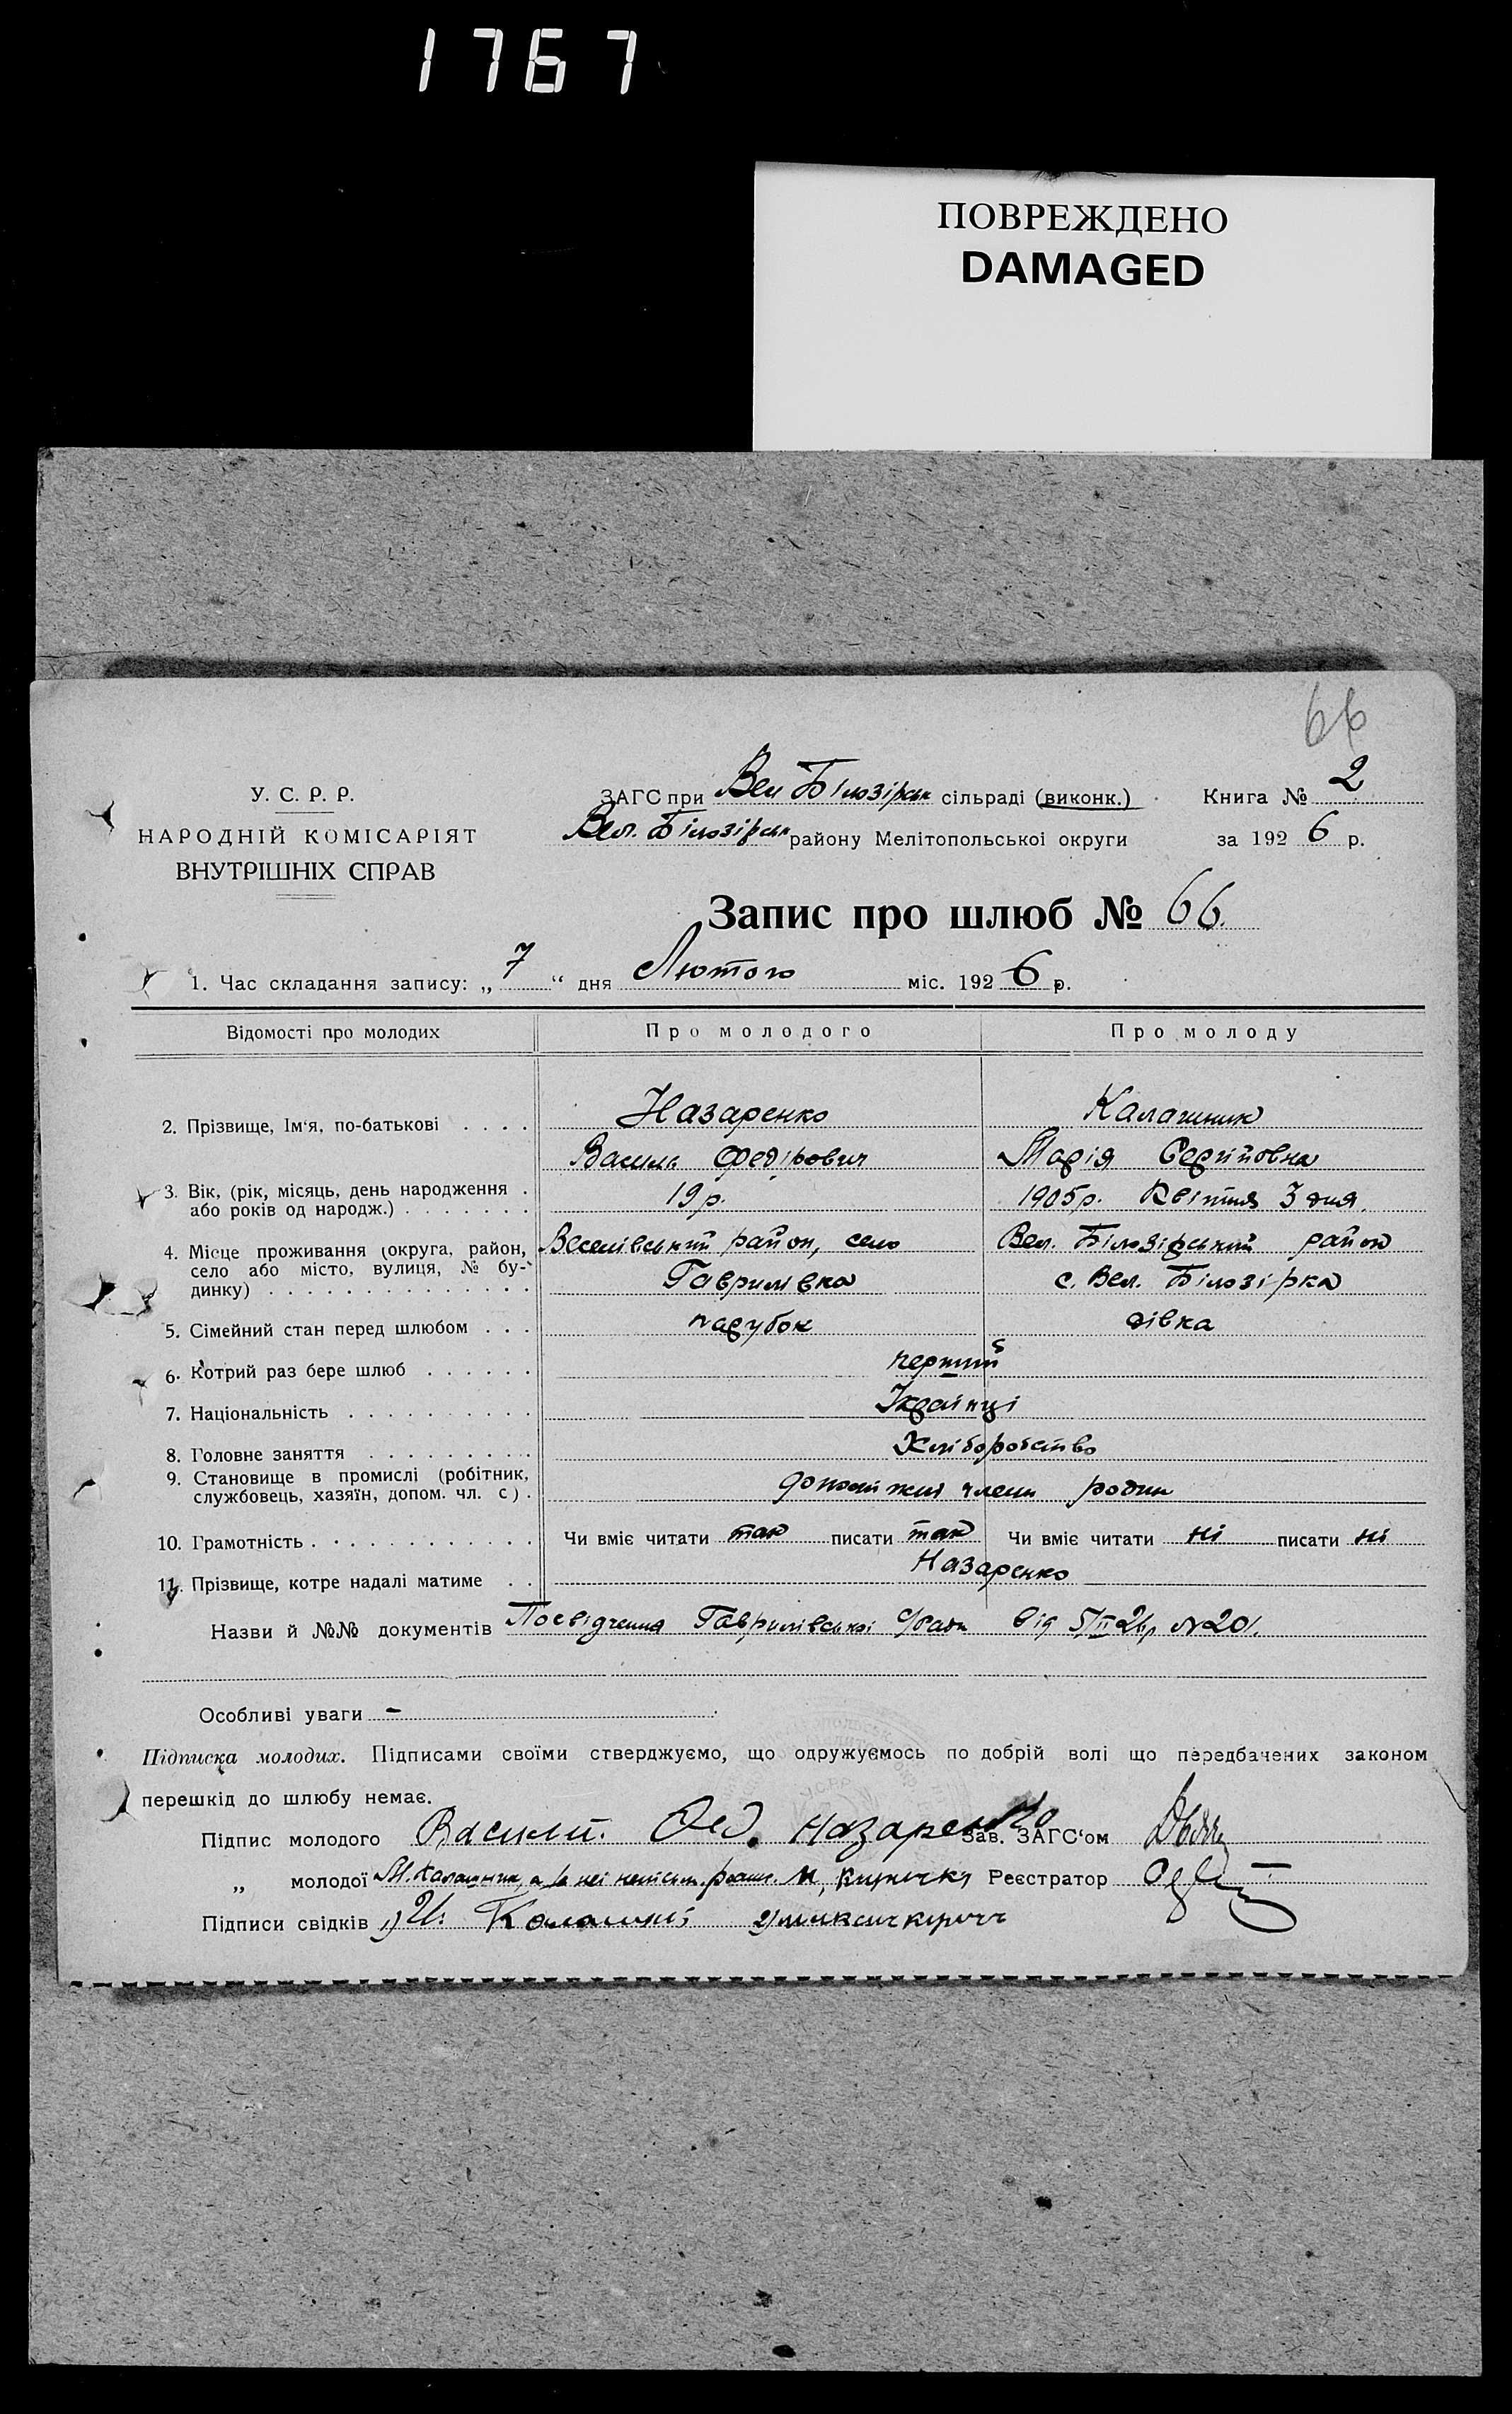 1767
ПОВРЕЖДЕНО
DAMAGED
66
У. С. Р. Р.
НАРОДНІЙ КОМІСАРІЯТ
ВНУТРІШНІХ СПРАВ
ЗАГС при Вел Білозірськ сільраді (виконк.)
Вел. Білозірськ району Мелітопольськоі округи
Книга № 2
за 1926 р.
Запис про шлюб № 66.
1. Час складання запису: „ 7 “ дня Лютого міс. 1926 р.
Відомості про молодих Про молодого Про молоду
2. Прізвище, Ім‘я, по-батькові . . . . Назаренко Калашник
Василь Федірович Марія Сергіїовна
3. Вік, (рік, місяць, день народження . або років од народж.) . . . . . . . 19 р. 1905 р. Квітня 3 дня.
4. Місце проживання (округа, район, Веселівський район, село Вел. Білозірський район
село або місто, вулиця, № бу-
динку) . . . . . . . . . . . . . . Гаврилівка с. Вел. Білозірка
5. Сімейний стан перед шлюбом . . . парубок дівка
6. Котрий раз бере шлюб . . . . . . перший
7. Національність . . . . . . . . . . Украінці
8. Головне заняття . . . . . . . . . Хліборобство
9. Становище в промислі (робітник,
службовець, хазяїн, допом. чл. с) . члени родин
10. Грамотність . . . . . . . . . . . . Чи вміє читати так писати так Чи вміє читати ні писати ні
11. Прізвище, котре надалі матиме . . Назаренко
Назви й №№ документів Посвідчення Гаврилівськоі с/ради від 5/II 26р №201.
Особливі уваги –
Підписка молодих. Підписами своїми стверджуємо, що одружуємось по добрій волі що передбачених законом
перешкід до шлюбу немає.
Підпис молодого Василий. Фед. Назаренко Зав. ЗАГС‘ом
„ молодої М. Калашник, а за неї М, Реєстратор
Підписи свідків 1) И. 2)